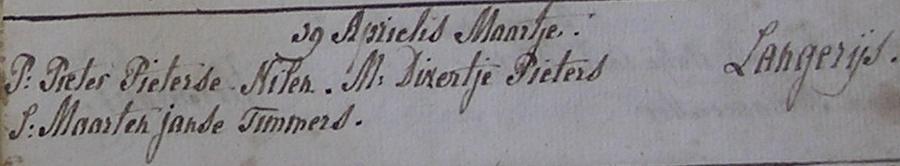 29 Aprielis Maartje.
P: Pieter Pieterse Niten. M: Dirertje Pieters Langerijs.
S: Maarten janse Timmers.